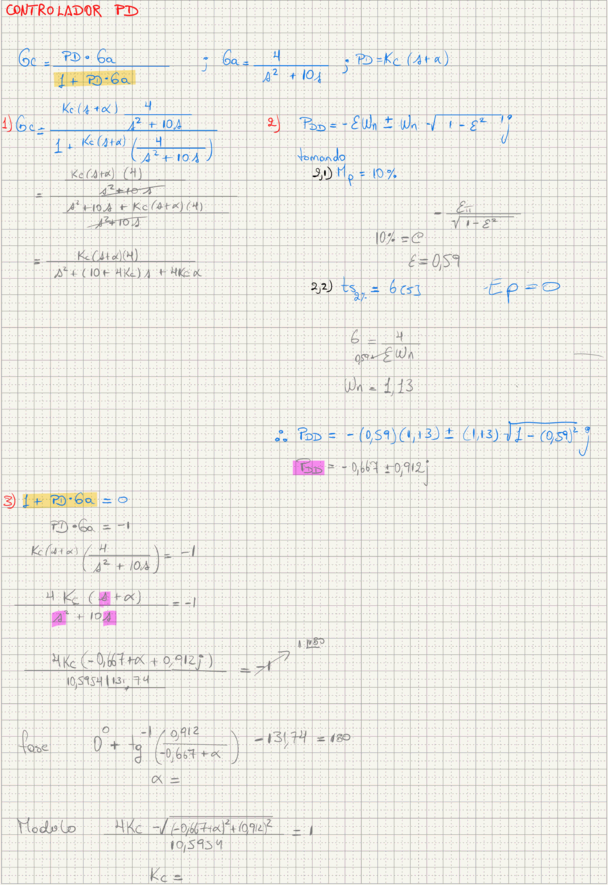 CONTROLADOR PD
Gc = PD•Ga / 1 + PD•Ga ; Ga = 4 / s² + 10s ; PD = Kc (s+α)
1) Gc = Kc(s+α) 4 / s² + 10s / 1 + Kc(s+α) (4 / s² + 10s)
= Kc(s+α)(4) / s²+10s / s²+10s + Kc(s+α)(4) / s²+10s
= Kc(s+α)(4) / s² + (10 + 4Kc)s + 4Kcα
2) PDD = -εWn ± Wn √1-ε² j
tomando
2,1) Mp = 10%
10% = e - επ / √1-ε²
ε = 0,59
2,2) ts2% = 6[s] Ep = 0
6 = 4 / εWn
0,59
Wn = 1,13
∴ PDD = -(0,59)(1,13) ± (1,13) √1-(0,59)² j
PDD = -0,667 ± 0,912j
3) 1 + PD•Ga = 0
PD•Ga = -1
Kc(s+α) (4 / s² + 10s) = -1
4 Kc (s+α) / s² + 10s = -1
4Kc(-0,667+α + 0,912j) / 10,5954|131,74 = -1
1 |180
fase 0° + tg⁻¹ (0,912 / -0,667+α) - 131,74 = 180
α =
Modulo 4Kc √(-0,667+α)²+(0,912)² / 10,5954 = 1
Kc =